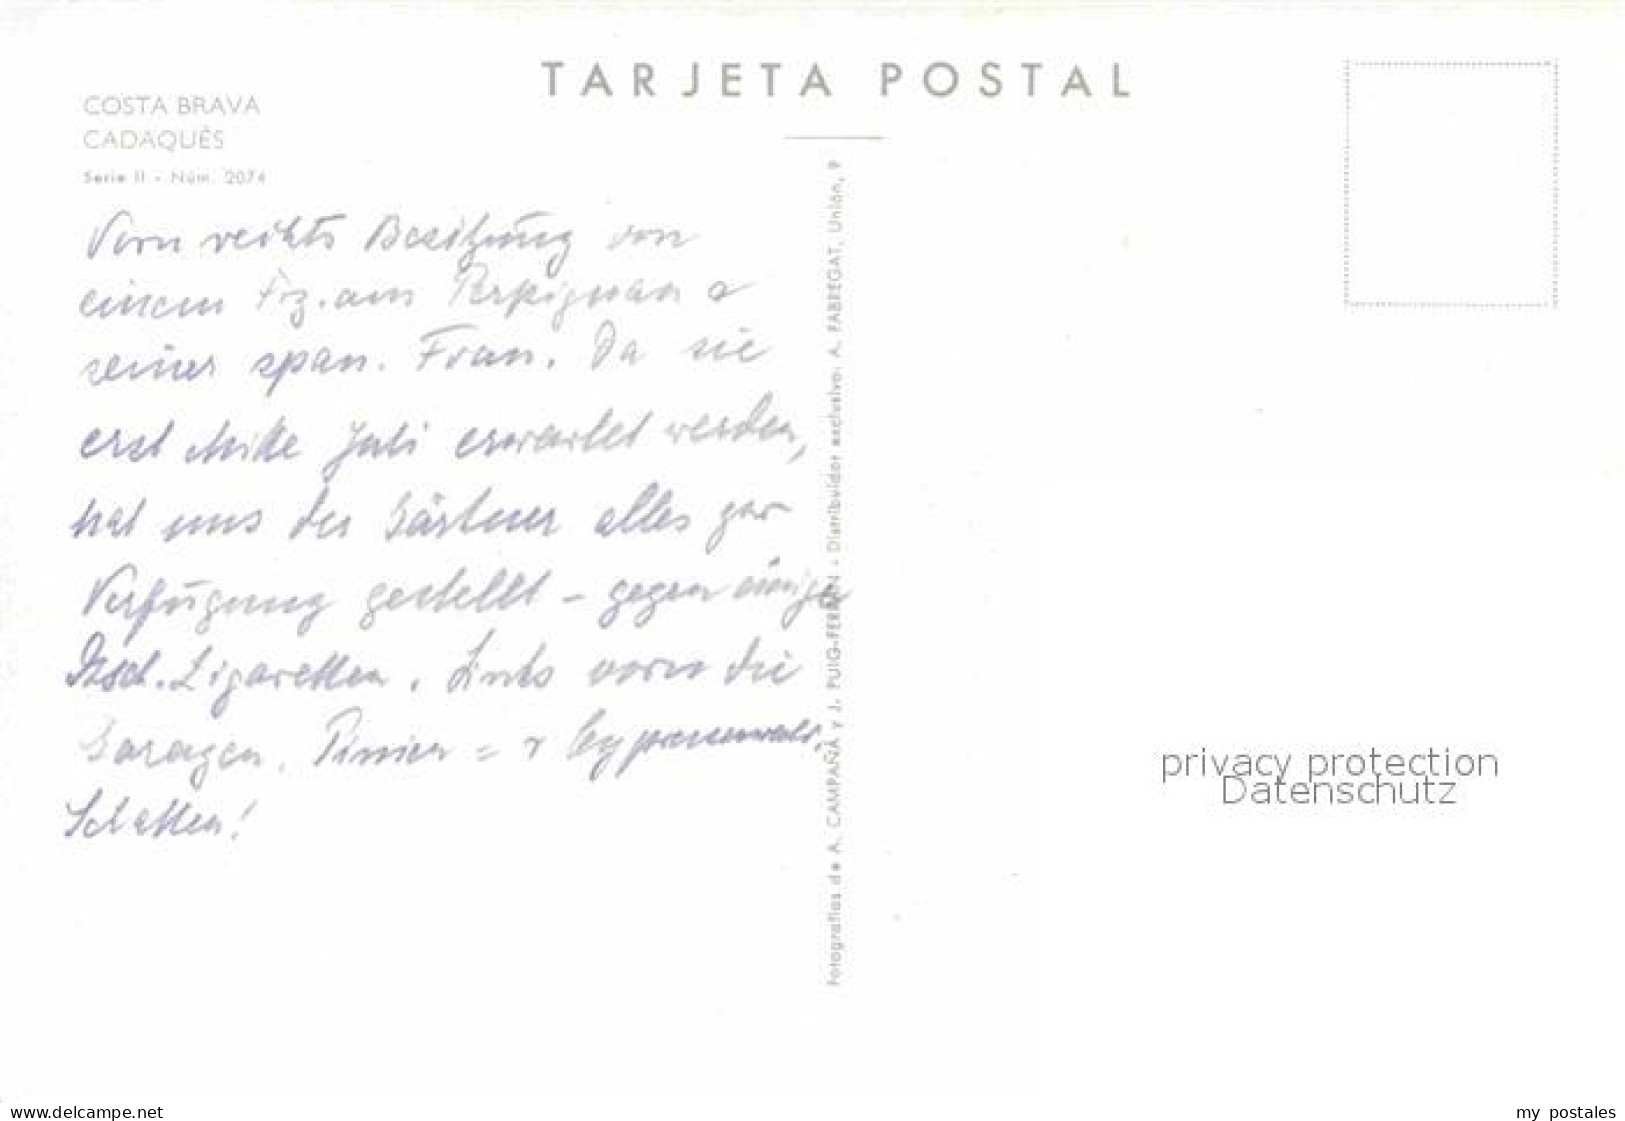 TARJETA POSTAL
COSTA BRAVA
CADAQUÉS
Serie II - Núm. 2074
Vorn rechts Besitzung von
einem Frz. aus Perpignan u
seiner span. Frau. Da sie
erst Mitte Juli erwartet werden,
hat uns der Gärtner alles zur
Verfügung gestellt – gegen einige
Dtsch. Zigaretten. Links vorn die
Garagen. Pinien = u Cypressenwald.
Schatten!
Fotografías de A. CAMPAÑÁ y J. PUIG-FERRÁN - Distribuidor exclusivo: A. FABREGAT, Unión, 9
privacy protection
Datenschutz
www.delcampe.net
my postales